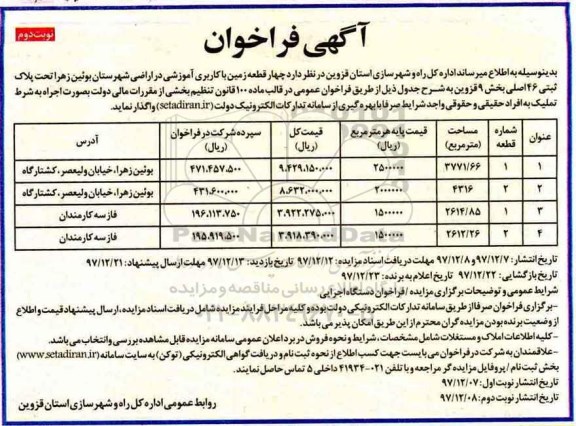 نوبت دوم
آگهی فراخوان
بدینوسیله به اطلاع میرساند اداره کل راه و شهرسازی استان قزوین در نظر دارد چهار قطعه زمین با کاربری آموزشی در اراضی شهرستان بوئین زهرا تحت پلاک
ثبتی ۴۶ اصلی بخش ۹ قزوین به شرح جدول ذیل از طریق فراخوان عمومی در قالب ماده ۱۰۰ قانون تنظیم بخشی از مقررات مالی دولت بصورت اجاره به شرط
تملیک به افراد حقیقی و حقوقی واجد شرایط صرفا با بهره گیری از سامانه تدارکات الکترونیک دولت (setadiran.ir) واگذار نماید.
عنوان | شماره قطعه | مساحت (مترمربع) | قیمت پایه هر مترمربع (ریال) | قیمت کل (ریال) | سپرده شرکت در فراخوان (ریال) | آدرس
۱ | ۱ | ۳۷۷۱/۶۶ | ۲۵۰۰۰۰۰ | ۹.۴۲۹.۱۵۰.۰۰۰ | ۴۷۱.۴۵۷.۵۰۰ | بوئین زهرا، خیابان ولیعصر، کشتارگاه
۲ | ۲ | ۴۳۱۶ | ۲۰۰۰۰۰۰ | ۸.۶۳۲.۰۰۰.۰۰۰ | ۴۳۱.۶۰۰.۰۰۰ | بوئین زهرا، خیابان ولیعصر، کشتارگاه
۳ | ۱ | ۲۶۱۴/۸۵ | ۱۵۰۰۰۰۰ | ۳.۹۲۲.۲۷۵.۰۰۰ | ۱۹۶.۱۱۳.۷۵۰ | فاز سه کارمندان
۴ | ۲ | ۲۶۱۲/۲۶ | ۱۵۰۰۰۰۰ | ۳.۹۱۸.۳۹۰.۰۰۰ | ۱۹۵.۹۱۹.۵۰۰ | فاز سه کارمندان
تاریخ انتشار: ۹۷/۱۲/۷ و ۹۷/۱۲/۸ مهلت دریافت اسناد مزایده: ۹۷/۱۲/۱۲ تاریخ بازدید: ۹۷/۱۲/۱۳ مهلت ارسال پیشنهاد: ۹۷/۱۲/۲۱
تاریخ بازگشایی: ۹۷/۱۲/۲۲ تاریخ اعلام به برنده: ۹۷/۱۲/۲۳
شرایط عمومی و توضیحات برگزاری مزایده / فراخوان دستگاه اجرایی
-برگزاری فراخوان صرفا از طریق سامانه تدارکات الکترونیکی دولت بوده و کلیه مراحل فرایند مزایده شامل دریافت اسناد مزایده، ارسال پیشنهاد قیمت و اطلاع
از وضعیت برنده بودن مزایده گران محترم از این طریق امکان پذیر می باشد.
-کلیه اطلاعات املاک و مستغلات شامل مشخصات، شرایط و نحوه فروش در برد اعلان عمومی سامانه مزایده قابل مشاهده بررسی و انتخاب می باشد.
-علاقمندان به شرکت در فراخوان می بایست جهت کسب اطلاع از نحوه ثبت نام و دریافت گواهی الکترونیکی (توکن) به سایت سامانه (www.setadiran.ir)
بخش ثبت نام / پروفایل مزایده گر مراجعه و با تلفن ۰۲۱-۴۱۹۳۴ داخلی ۵ تماس حاصل نمایند.
تاریخ انتشار نوبت اول: ۹۷/۱۲/۰۷
تاریخ انتشار نوبت دوم: ۹۷/۱۲/۰۸
روابط عمومی اداره کل راه و شهرسازی استان قزوین